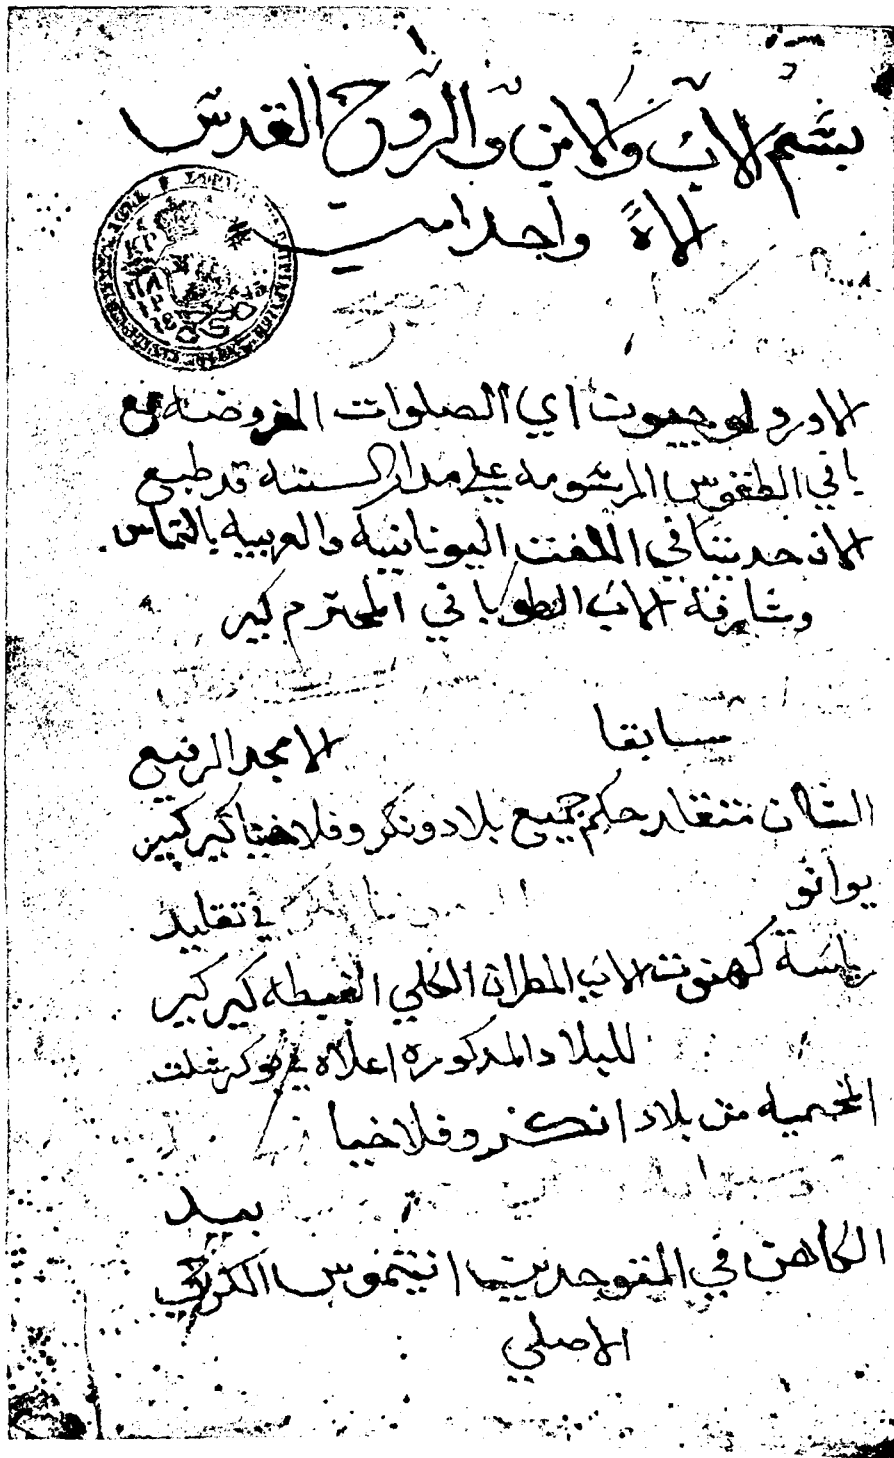 بسم الاب والابن والروح القدس
الاهً واحد امين
الاورولوجيون اي الصلوات المفروضه مع
باقي الطقوس المرسومه على مدار السنه قد طبع
الان حديثا في اللغت اليونانيه والعربيه بالتماس
ومشارفة الاب الطوباني المحترم كير
سابقا الامجد الرفيع
الشان متقلد حكم جميع بلاد ونكروفلاخيا كير كير
يوانو في تقليد
رياسة كهنوت الاب المطران الكلي الغبطه كير كير
للبلاد المدكوره اعلاه في بوكرشت
المحميه من بلاد انكروفلاخيا
بيد
الكاهن في المتوحدين انتيموس الكرجي
الاصلي